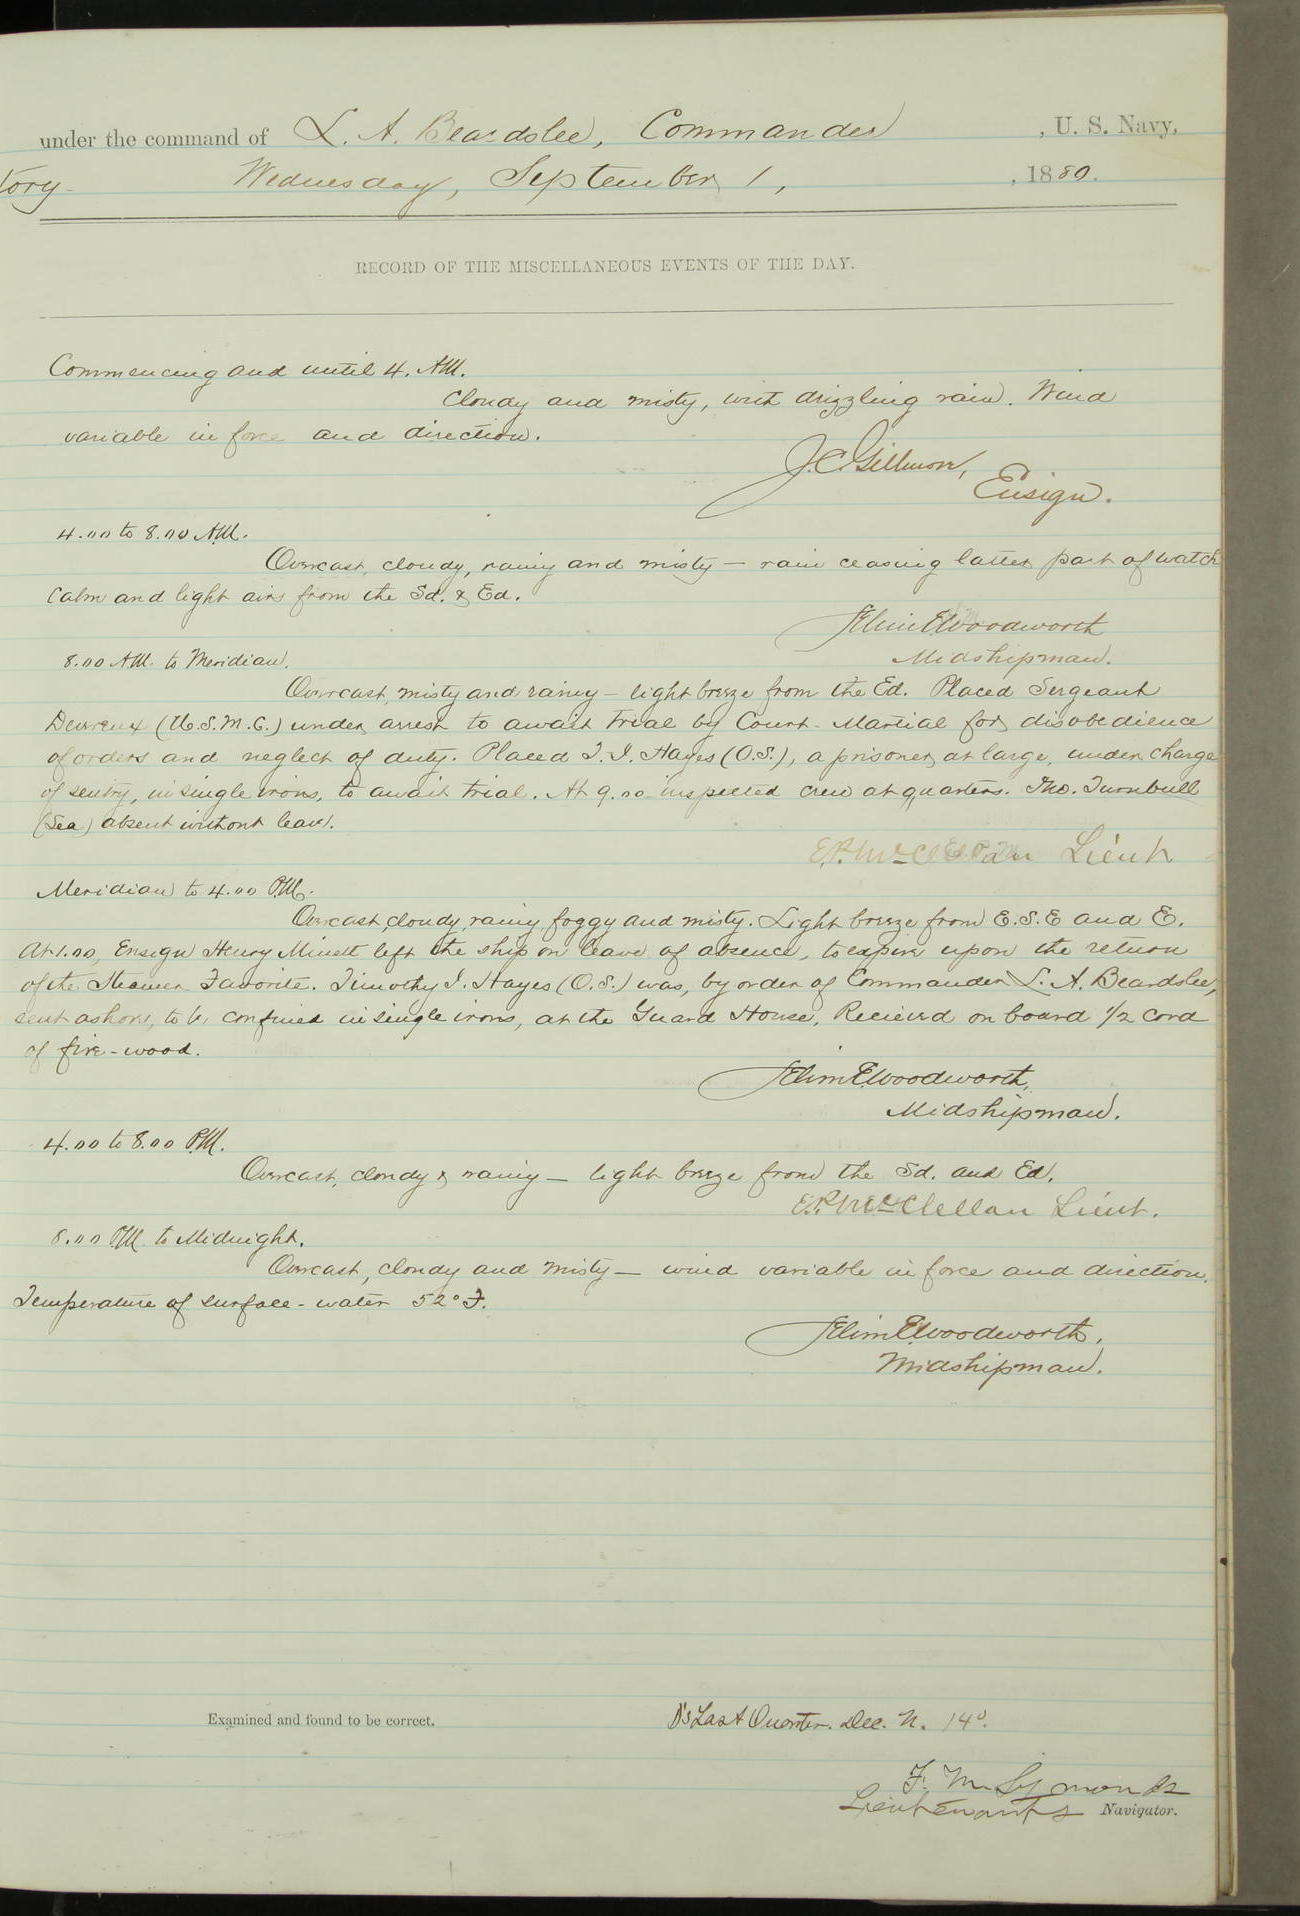 under the command of L. A. Beardslee, Commander , U. S. Navy,
tory. Wednesday, September 1, , 1880.
RECORD OF THE MISCELLANEOUS EVENTS OF THE DAY.
Commencing and until 4. AM.
Cloudy and misty, with drizzling rain. Wind
variable in force and direction.
J. C. Gillmore,
Ensign.
4.00 to 8.00 A.M.
Overcast, cloudy, rainy and misty — rain ceasing latter part of watch
Calm and light airs from the Sd. & Ed.
Selim E. Woodworth
Midshipman.
8.00 AM. to Meridian.
Overcast, misty and rainy — light breeze from the Ed. Placed Sergeant
Devreux (U.S.M.C.) under arrest to await trial by Court-Martial for disobedience
of orders and neglect of duty. Placed T. J. Hayes (O.S.), a prisoner at large, under charge
of sentry, in single irons, to await trial. At 9.00 inspected crew at quarters. Tho. Turnbull
(Sea) absent without leave.
E.P. McClellan Lieut
Meridian to 4.00 P.M.
Overcast, cloudy, rainy, foggy and misty. Light breeze from E.S.E and E.
At 1.00, Ensign Henry Minett left the ship on leave of absence, to expire upon the return
of the Steamer Favorite. Timothy J. Hayes (O.S.) was, by order of Commander L. A. Beardslee,
sent ashore, to be confined in single irons, at the Guard House, Recieved on board 1/2 cord
of fire-wood.
Selim E. Woodworth,
Midshipman.
4.00 to 8.00 P.M.
Overcast, cloudy & rainy — light breeze from the Sd. and Ed.
E.P. McClellan Lieut.
8.00 P.M. to Midnight.
Overcast, cloudy and misty — wind variable in force and direction.
Temperature of surface-water 52° F.
Selim E. Woodworth,
Midshipman.
Examined and found to be correct. ☽'s Last Quarter. Dec. N. 14°.
F. M. Symonds
Lieutenant & Navigator.